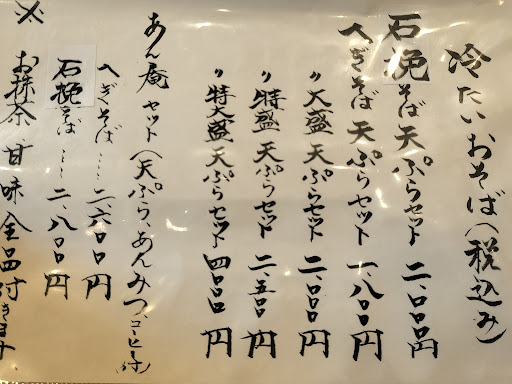 冷たいおそば(税込み)
石挽そば 天ぷらセット 二、〇〇〇円
へぎそば 天ぷらセット 一、八〇〇円
〃 大盛 天ぷらセット 二、〇〇〇円
〃 特盛 天ぷらセット 二、五〇〇円
〃 特大盛 天ぷらセット 四〇〇〇円
あん庵 セット(天ぷら、あんみつ コーヒー付)
へぎそば … 二、六〇〇円
石挽そば …… 二、八〇〇円
※ お抹茶 甘味 全品付きます